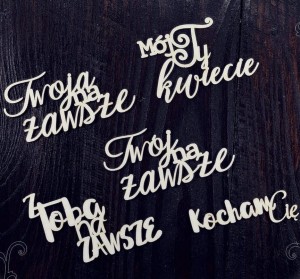 Mój Ty
kwiecie
Twoja
na
zawsze
Twój
na
zawsze
Z
Tobą
na
ZAWSZE
Kocham Cię